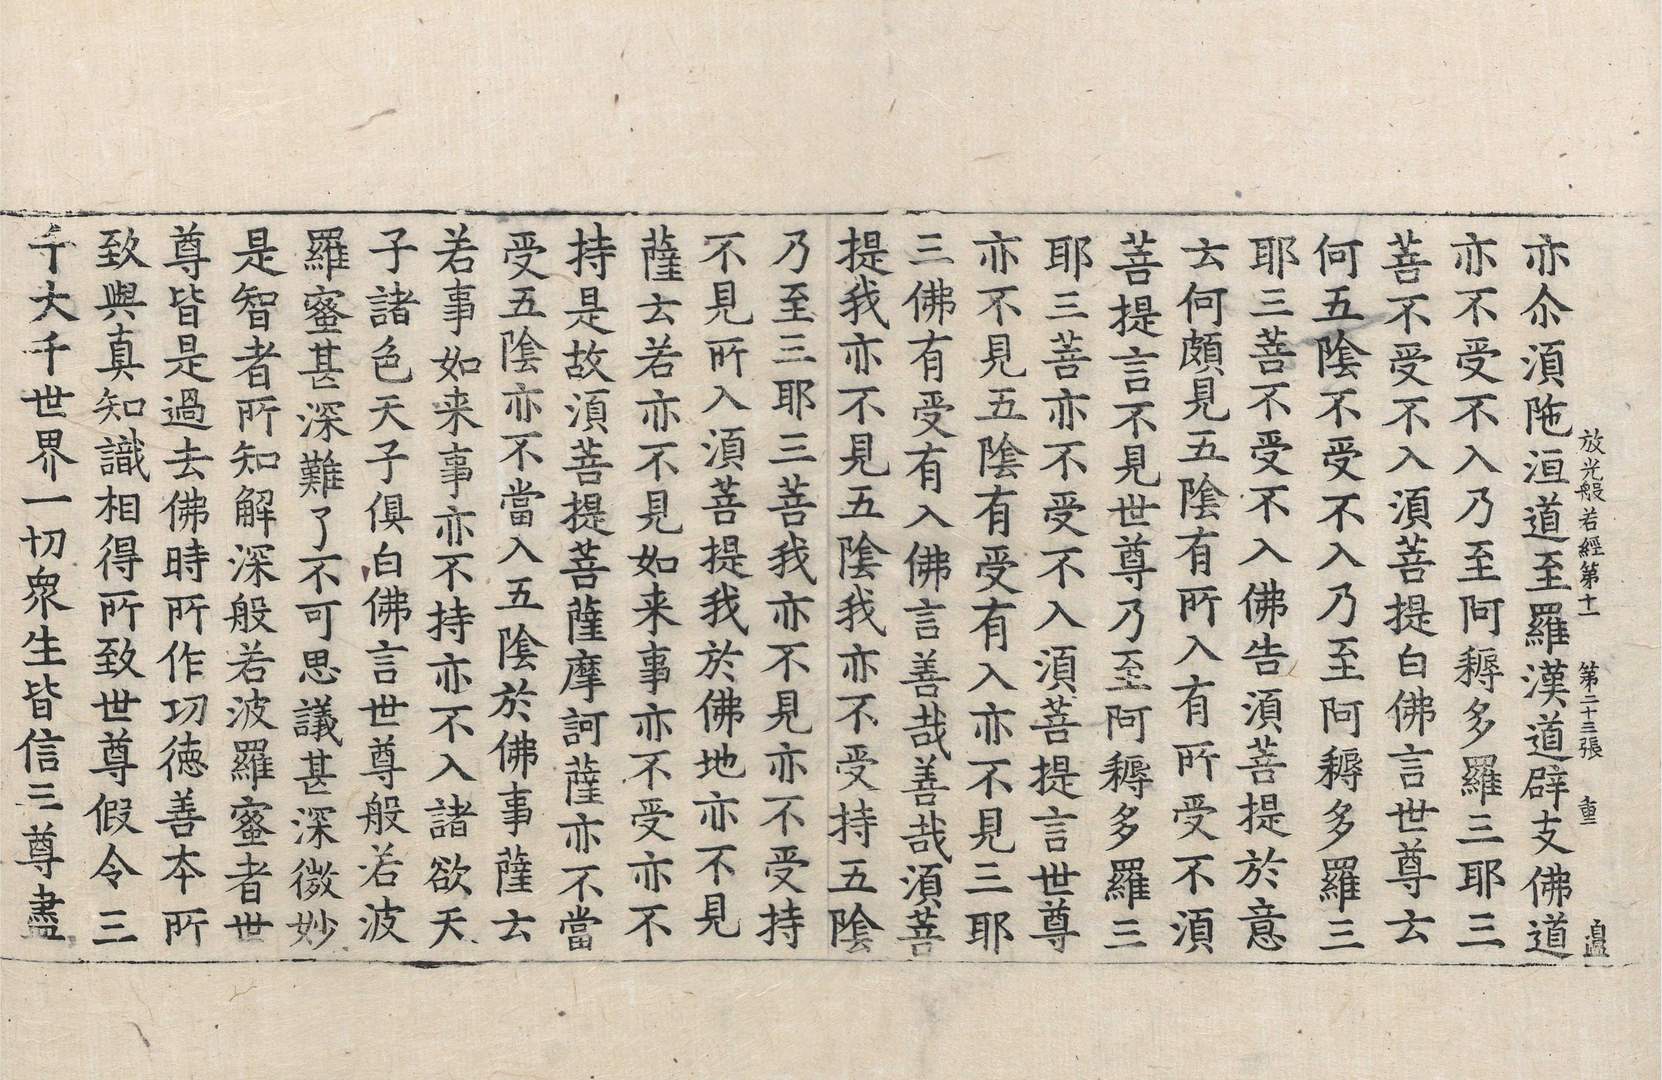 放光般若經第十一 第二十三張 重
亦尒湏陁洹道至羅漢道辟支佛道
亦不受不入乃至阿耨多羅三耶三
菩不受不入湏菩提白佛言世尊云
何五隂不受不入乃至阿耨多羅三
耶三菩不受不入佛告湏菩提於意
云何頗見五隂有所入有所受不湏
菩提言不見世尊乃至阿耨多羅三
耶三菩亦不受不入湏菩提言世尊
亦不見五隂有受有入亦不見三耶
三佛有受有入佛言善哉善哉湏菩
提我亦不見五隂我亦不受持五隂
乃至三耶三菩我亦不見亦不受持
不見所入湏菩提我於佛地亦不見
薩云若亦不見如来事亦不受亦不
持是故湏菩提菩薩摩訶薩亦不當
受五隂亦不當入五隂於佛事薩云
若事如来事亦不持亦不入諸欲天
子諸色天子俱白佛言世尊般若波
羅蜜甚深難了不可思議甚深微妙
是智者所知解深般若波羅蜜者世
尊皆是過去佛時所作功徳善本所
致與真知識相得所致世尊假令三
千大千世界一切衆生皆信三尊盡